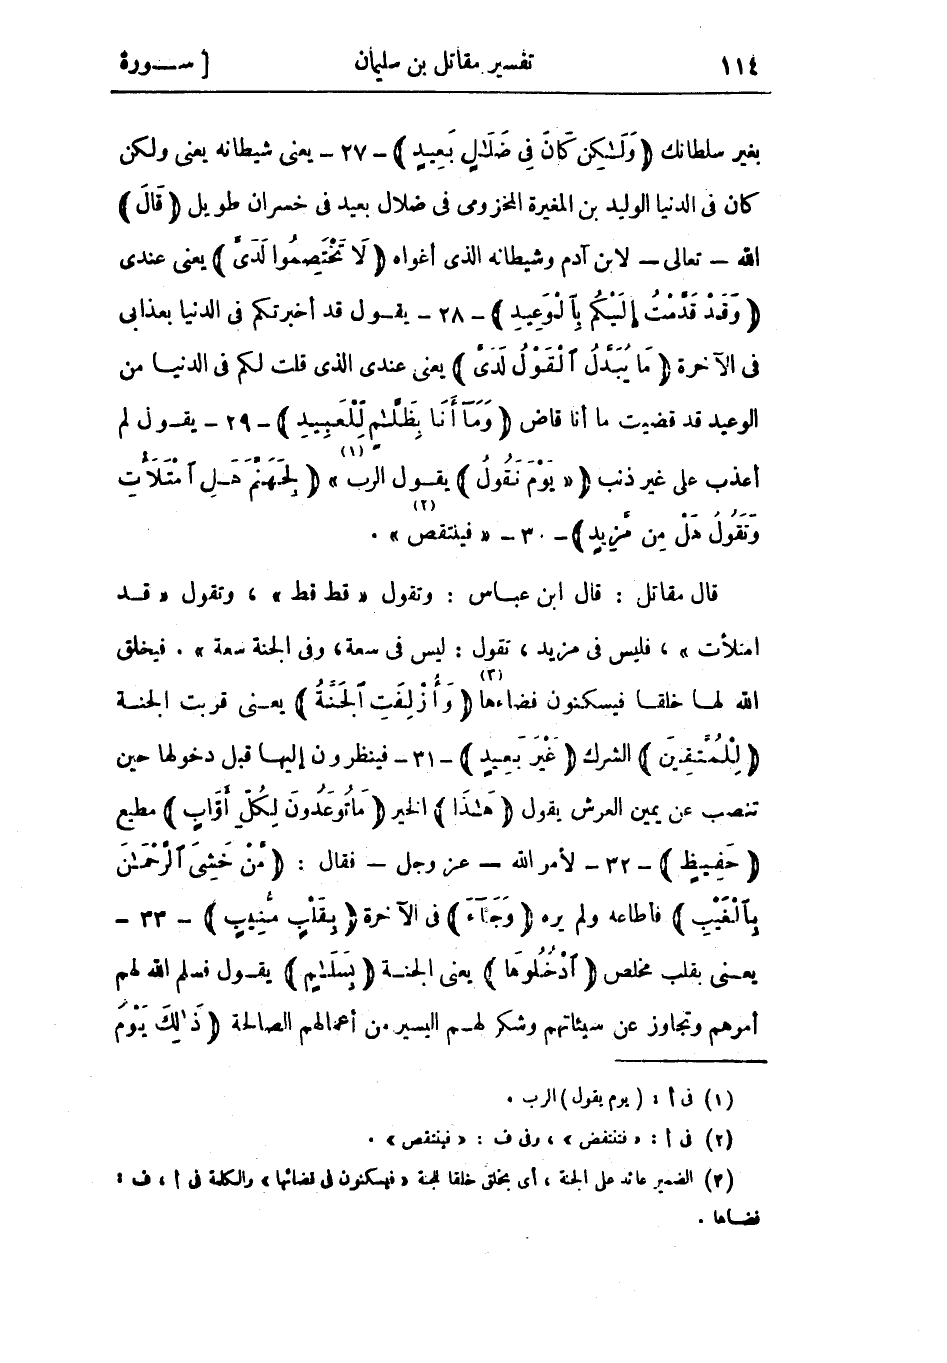 ١١٤ تفسير مقاتل بن سليمان [ سـورة
بغير سلطانك ( وَلَـٰكِن كَانَ فِى ضَلَـٰلٍ بَعِيدٍ ) - ٢٧ - يعنى شيطانه يعنى ولكن
كان فى الدنيا الوليد بن المغيرة المخزومى فى ضلال بعيد فى خسران طويل ( قَالَ )
الله - تعالى - لابن آدم وشيطانه الذى أغواه ( لَا تَخْتَصِمُوا لَدَىَّ ) يعنى عندى
( وَقَدْ قَدَّمْتُ إِلَيْكُم بِٱلْوَعِيدِ ) - ٢٨ - يقـول قد أخبرتكم فى الدنيا بعذابى
فى الآخرة ( مَا يُبَدَّلُ ٱلْقَوْلُ لَدَىَّ ) يعنى عندى الذى قلت لكم فى الدنيـا من
الوعيد قد قضيت ما أنا قاض ( وَمَآ أَنَا۠ بِظَلَّـٰمٍ لِّلْعَبِيدِ ) - ٢٩ - يقـول لم
أعذب على غير ذنب ( « يَوْمَ نَقُولُ ) يقـول الرب » (١) ( لِجَهَنَّمَ هَـلِ ٱمْتَلَأْتِ
وَتَقُولُ هَلْ مِن مَّزِيدٍ ) - ٣٠ - « فينتقص » (٢) .
قال مقاتل : قال ابن عبـاس : وتقول « قط قط » ، وتقول « قـد
امتلأت » ، فليس فى مزيد ، تقول : ليس فى سعة ، وفى الجنة سعة » . فيخلق
الله لهـا خلقـا فيسكنون فضاءها (٣) ( وَأُزْلِفَتِ ٱلْجَنَّةُ ) يعـنى قربت الجنـة
( لِلْمُتَّقِينَ ) الشرك ( غَيْرَ بَعِيدٍ ) - ٣١ - فينظرون إليهـا قبل دخولها حين
تنصب عن يمين العرش يقول ( هَـٰذَا ) الخير ( مَا تُوعَدُونَ لِكُلِّ أَوَّابٍ ) مطيع
( حَفِيظٍ ) - ٣٢ - لأمر الله - عز وجل - فقال : ( مَّنْ خَشِىَ ٱلرَّحْمَـٰنَ
بِٱلْغَيْبِ ) فأطاعه ولم يره ( وَجَآءَ ) فى الآخرة ( بِقَلْبٍ مُّنِيبٍ ) - ٣٣ -
يعـنى بقلب مخلص ( ٱدْخُلُوهَا ) يعنى الجنـة ( بِسَلَـٰمٍ ) يقـول فسلم الله لهم
أمرهم وتجاوز عن سيئاتهم وشكر لهـم اليسير من أعمالهم الصالحة ( ذَٰلِكَ يَوْمُ
(١) فى أ : ( يوم يقول ) الرب .
(٢) فى أ : « فتنتفض » ، وفى ف : « فينتقص » .
(٣) الضمير عائد على الجنة ، أى يخلق خلقا للجنة « فيسكنون فى فضائها » والكلمة فى أ ، ف :
فضـاها .